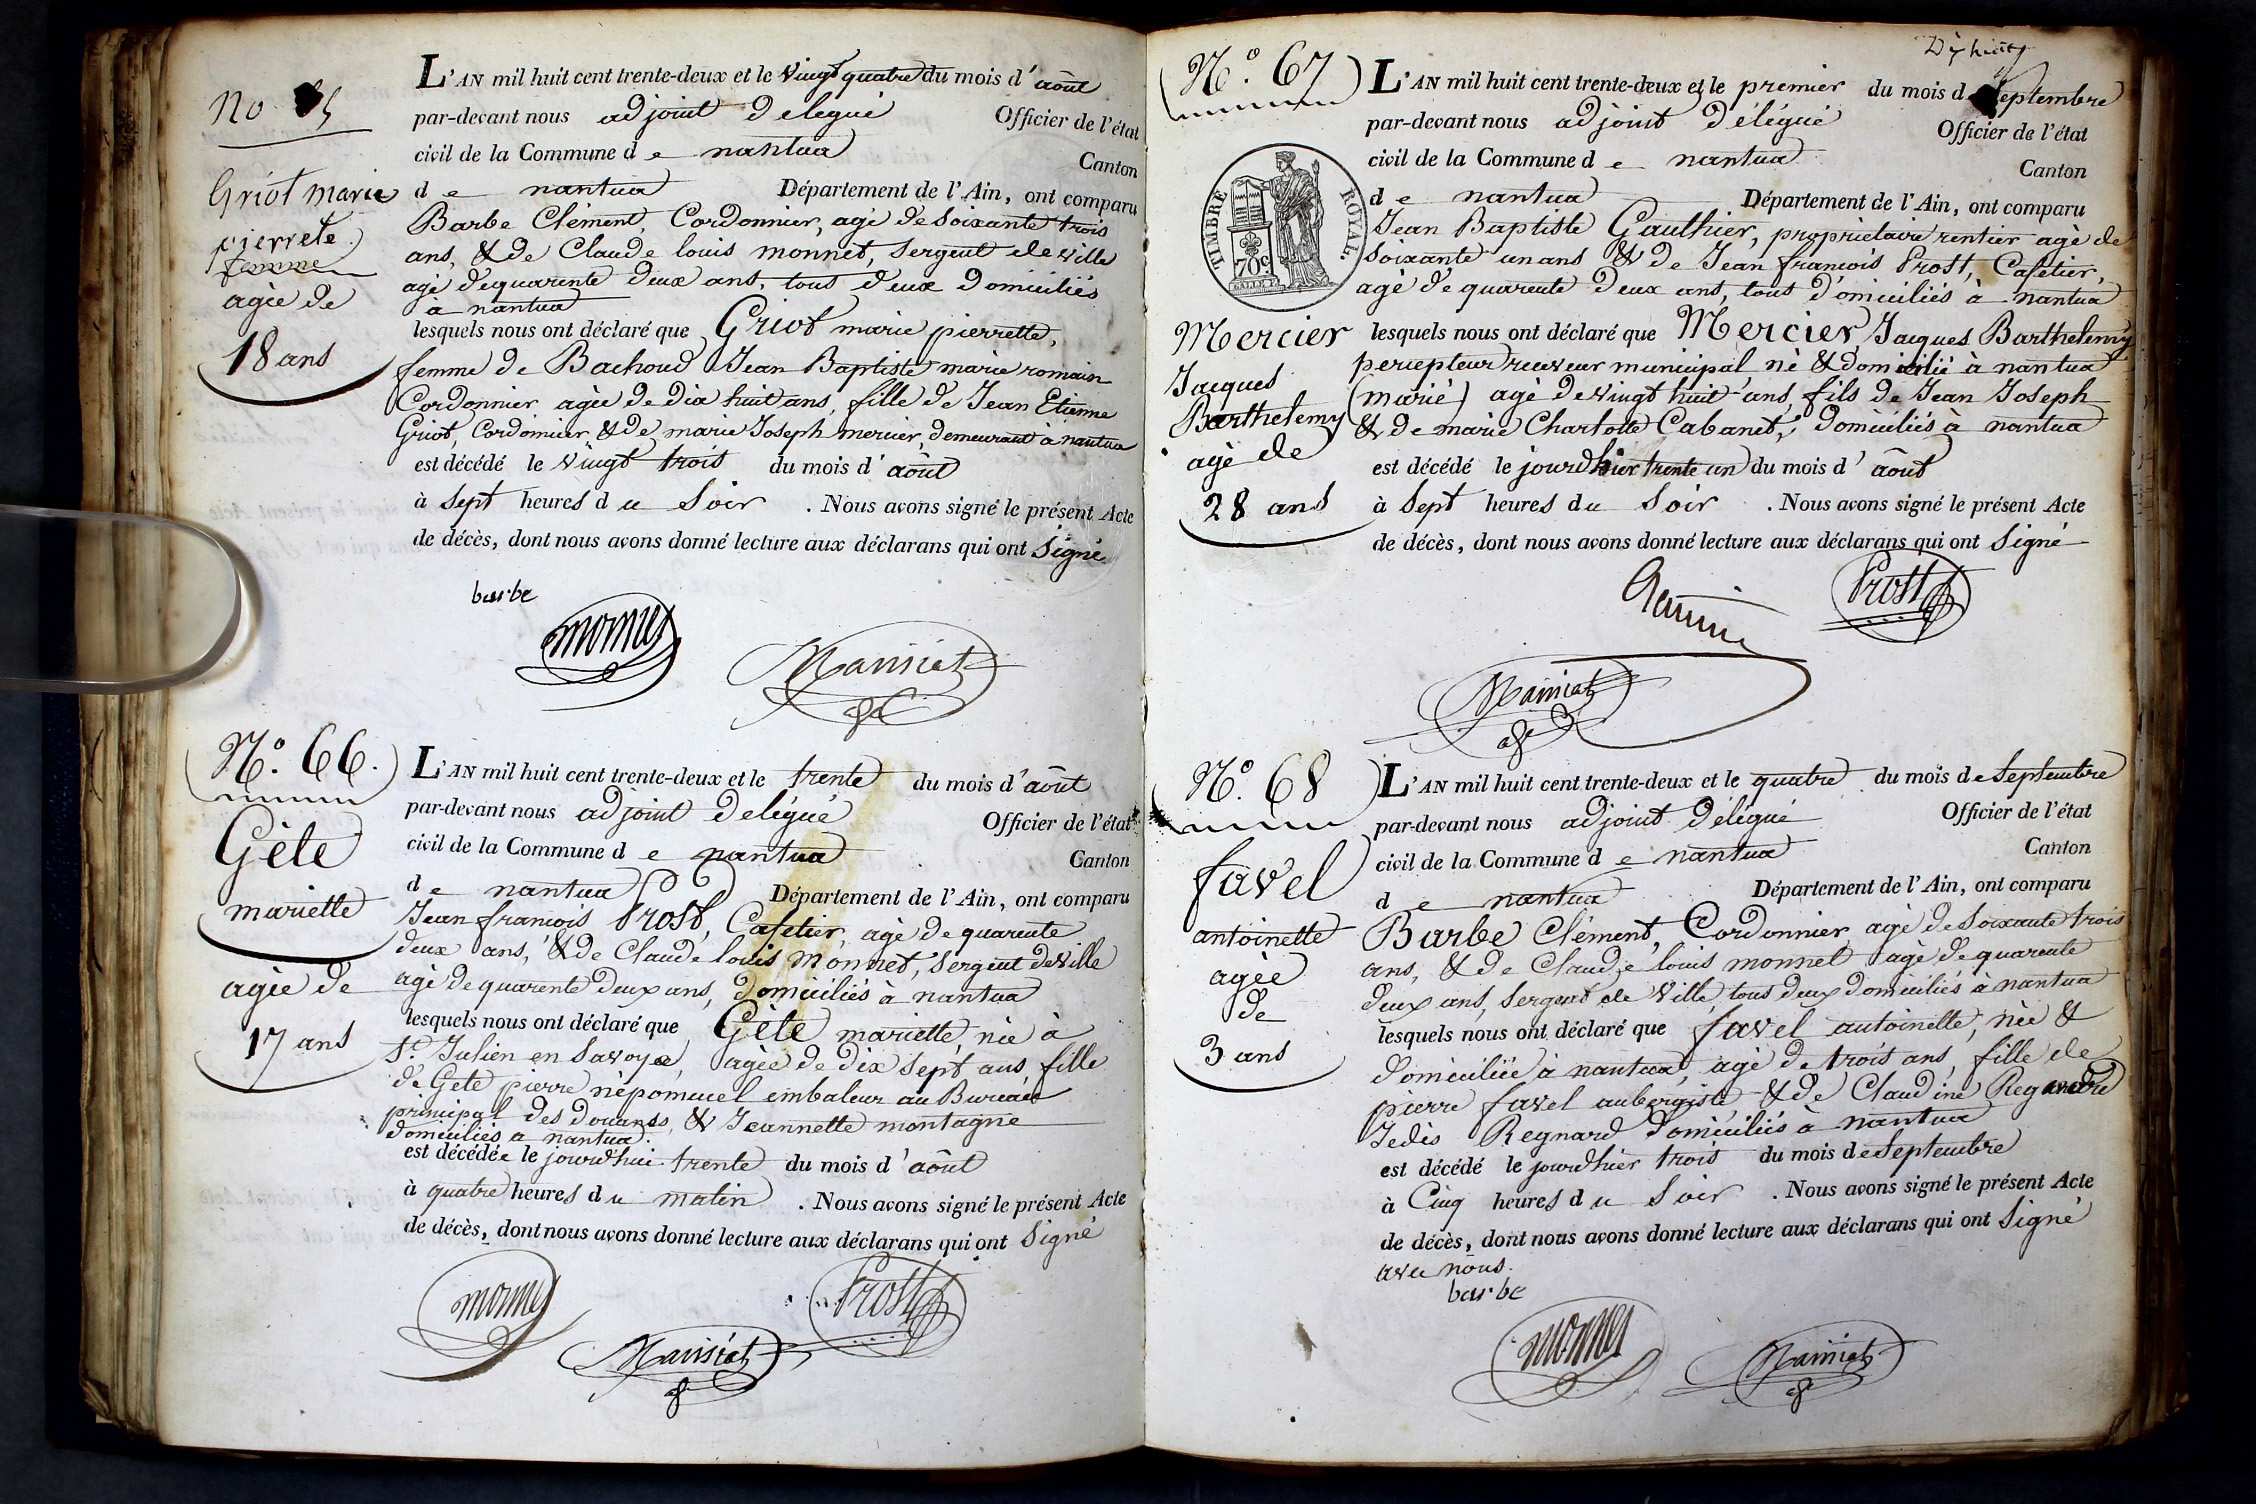 No 65
Griot marie
pierrete
femme
agée de
18 ans
L'AN mil huit cent trente-deux et le vingt quatre du mois d'août
par-devant nous adjoint délégué Officier de l'état
civil de la Commune de nantua Canton
de nantua Département de l'Ain, ont comparu
Barbe Clément, Cordonnier, agé de soixante trois
ans, & de Claude louis monnet, sergent de ville
agé de quarente deux ans, tous deux domiciliés
à nantua
lesquels nous ont déclaré que Griot marie pierrette,
femme de Bachoud Jean Baptiste marie romain
Cordonnier agée de dix huit ans, fille de Jean Etienne
Griot, Cordonnier & de marie Joseph mercier, demeurant à nantua
est décédé le vingt trois du mois d'août
à sept heures du soir . Nous avons signé le présent Acte
de décès, dont nous avons donné lecture aux déclarans qui ont signé
barbe
monnet
Mansiat
N.° 66.
Gète
mariette
agée de
17 ans
L'AN mil huit cent trente-deux et le trente du mois d'août
par-devant nous adjoint délégué Officier de l'état
civil de la Commune de nantua Canton
de nantua Département de l'Ain, ont comparu
Jean françois Prost, Cafetier, agé de quarente
deux ans, & de Claude louis monnet, sergent de ville
agé de quarente deux ans, domiciliés à nantua
lesquels nous ont déclaré que Gète mariette, née à
St. Julien en Savoye, agée de dix sept ans, fille
de Gete pierre népomucel embaleur au Bureau
principal des Douanes, & Jeannette montagne
domiciliés a nantua.
est décédée le jourd'hui trente du mois d'août
à quatre heures du matin . Nous avons signé le présent Acte
de décès, dont nous avons donné lecture aux déclarans qui ont signé
monnet
Prost
Mansiat
N.° 67
TIMBRE ROYAL.
70c
Mercier
Jacques
Barthelemy
agé de
28 ans
L'AN mil huit cent trente-deux et le premier du mois de septembre
par-devant nous adjoint délégué Officier de l'état
civil de la Commune de nantua Canton
de nantua Département de l'Ain, ont comparu
Jean Baptiste Gauthier, propriétaire rentier agé de
soixante un ans & de Jean françois Prost, Cafetier,
agé de quarente deux ans, tous domiciliés à nantua
lesquels nous ont déclaré que Mercier, Jacques Barthelemy
percepteur receveur municipal né & domicilié à nantua
(marié) agé de vingt huit ans, fils de Jean Joseph
& de marie Charlotte Cabanet, domiciliés à nantua
est décédé le jourd'hier trente un du mois d'août
à sept heures du soir . Nous avons signé le présent Acte
de décès, dont nous avons donné lecture aux déclarans qui ont signé
Prost
Mansiat
N.° 68
favel
antoinette
agée
de
3 ans
L'AN mil huit cent trente-deux et le quatre du mois de septembre
par-devant nous adjoint délégué Officier de l'état
civil de la Commune de nantua Canton
de nantua Département de l'Ain, ont comparu
Barbe Clément, Cordonnier agé de soixante trois
ans, & de Claude louis monnet agé de quarente
deux ans, sergent de ville, tous deux domiciliés à nantua
lesquels nous ont déclaré que favel antoinette, née &
domiciliée à nantua, agé de trois ans, fille de
pierre favel aubergiste & de Claudine
Jedis Regnard domiciliés à nantua
est décédé le jourd'hier trois du mois de septembre
à Cinq heures du soir . Nous avons signé le présent Acte
de décès, dont nous avons donné lecture aux déclarans qui ont signé
avec nous.
barbe
monnet
Mansiat